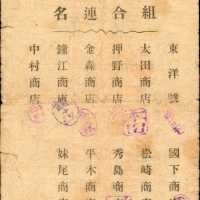 組合連名
東洋號
太田商店
押野商店
金森商店
鐘江商店
中村商店
國下商
松崎商
秀島商
平木商
妹尾商